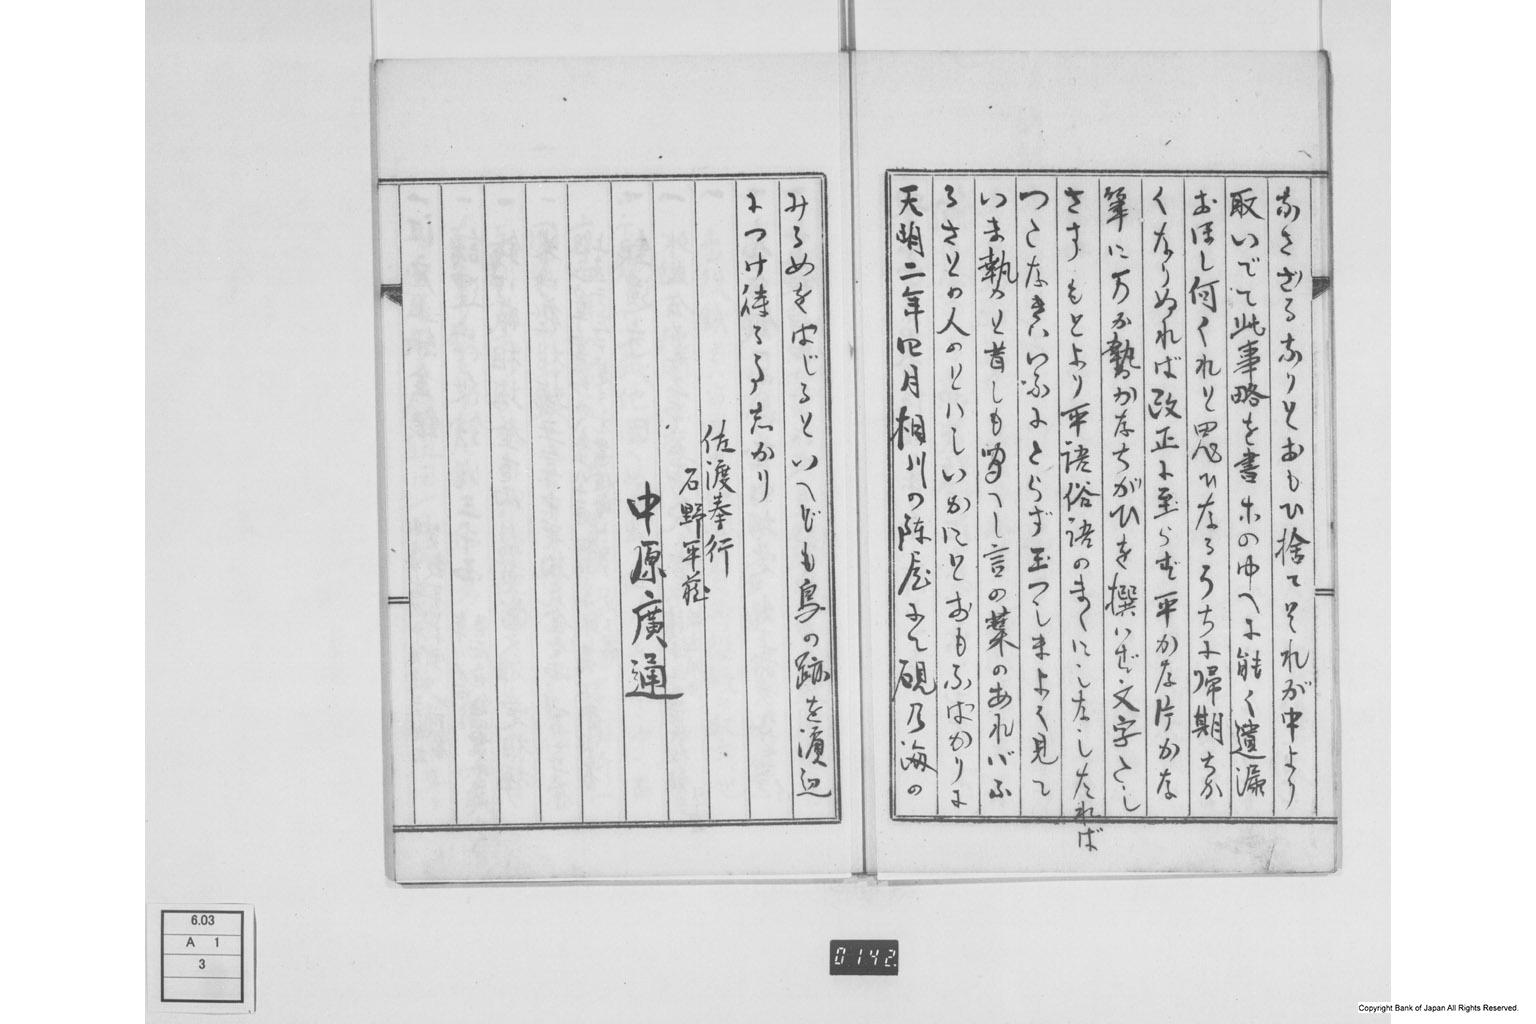 なきざるなりとおもひ捨てそれが中より
取いでて此事略を書ホのゆへに能く遺漏
おほし何くれと思ひなるうちに帰期ちか
くなりぬれば改正に至らず平かな片かな
筆に万か勢かなちがひを撰いず文字さし
さすもとより平語俗語のまくにしなしたれば
つたなきいふにたらず玉つしまよく見て
いま執のと昔しも聞へし言の葉のあれバふ
るさとの人のとハしいかにとおもふばかりに
天明二年四月相川の陣屋にて硯乃海の
みるめをはじるといへども鳥の跡を濱辺
につけ待る事しかり
佐渡奉行
石野平蔵
中原廣通
6.03
A 1
3
0142
Copyright Bank of Japan All Rights Reserved.